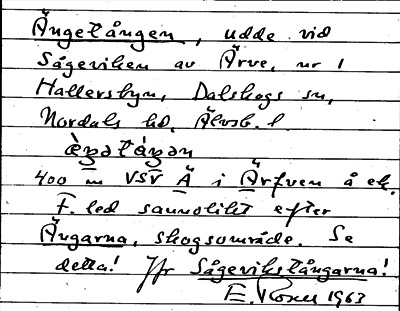 Ängetången, udde vid
Sågeviken av Ärve, nr 1
Hallersbyn, Dalskogs sn,
Nordals hd, Älvsb. l.
400 m VSV Ä i Ärfven å ek.
F. led sannolikt efter
Ängarna, skogsområde. Se
detta! Jfr Sågevikstångarna!
E. 1963